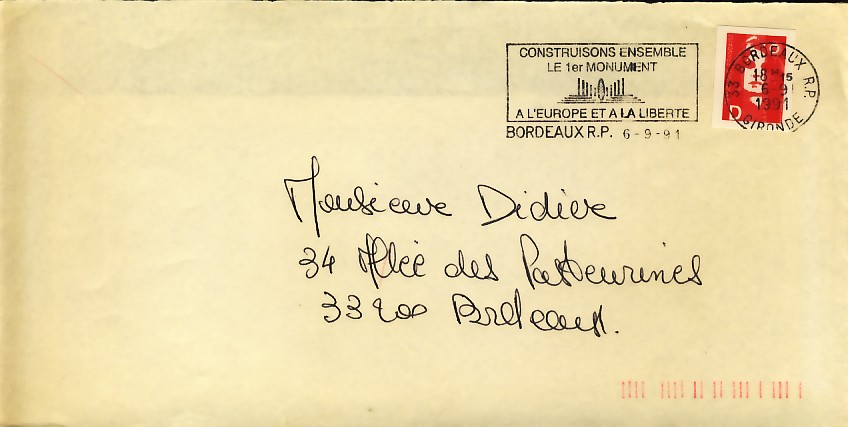 CONSTRUISONS ENSEMBLE
LE 1er MONUMENT
A L'EUROPE ET A LA LIBERTE
BORDEAUX R.P. 6-9-91
33 BORDEAUX R.P.
18 H 15
6-9
1991
GIRONDE
D
Monsieur Didier
34 Allée des
33200 Bordeaux.